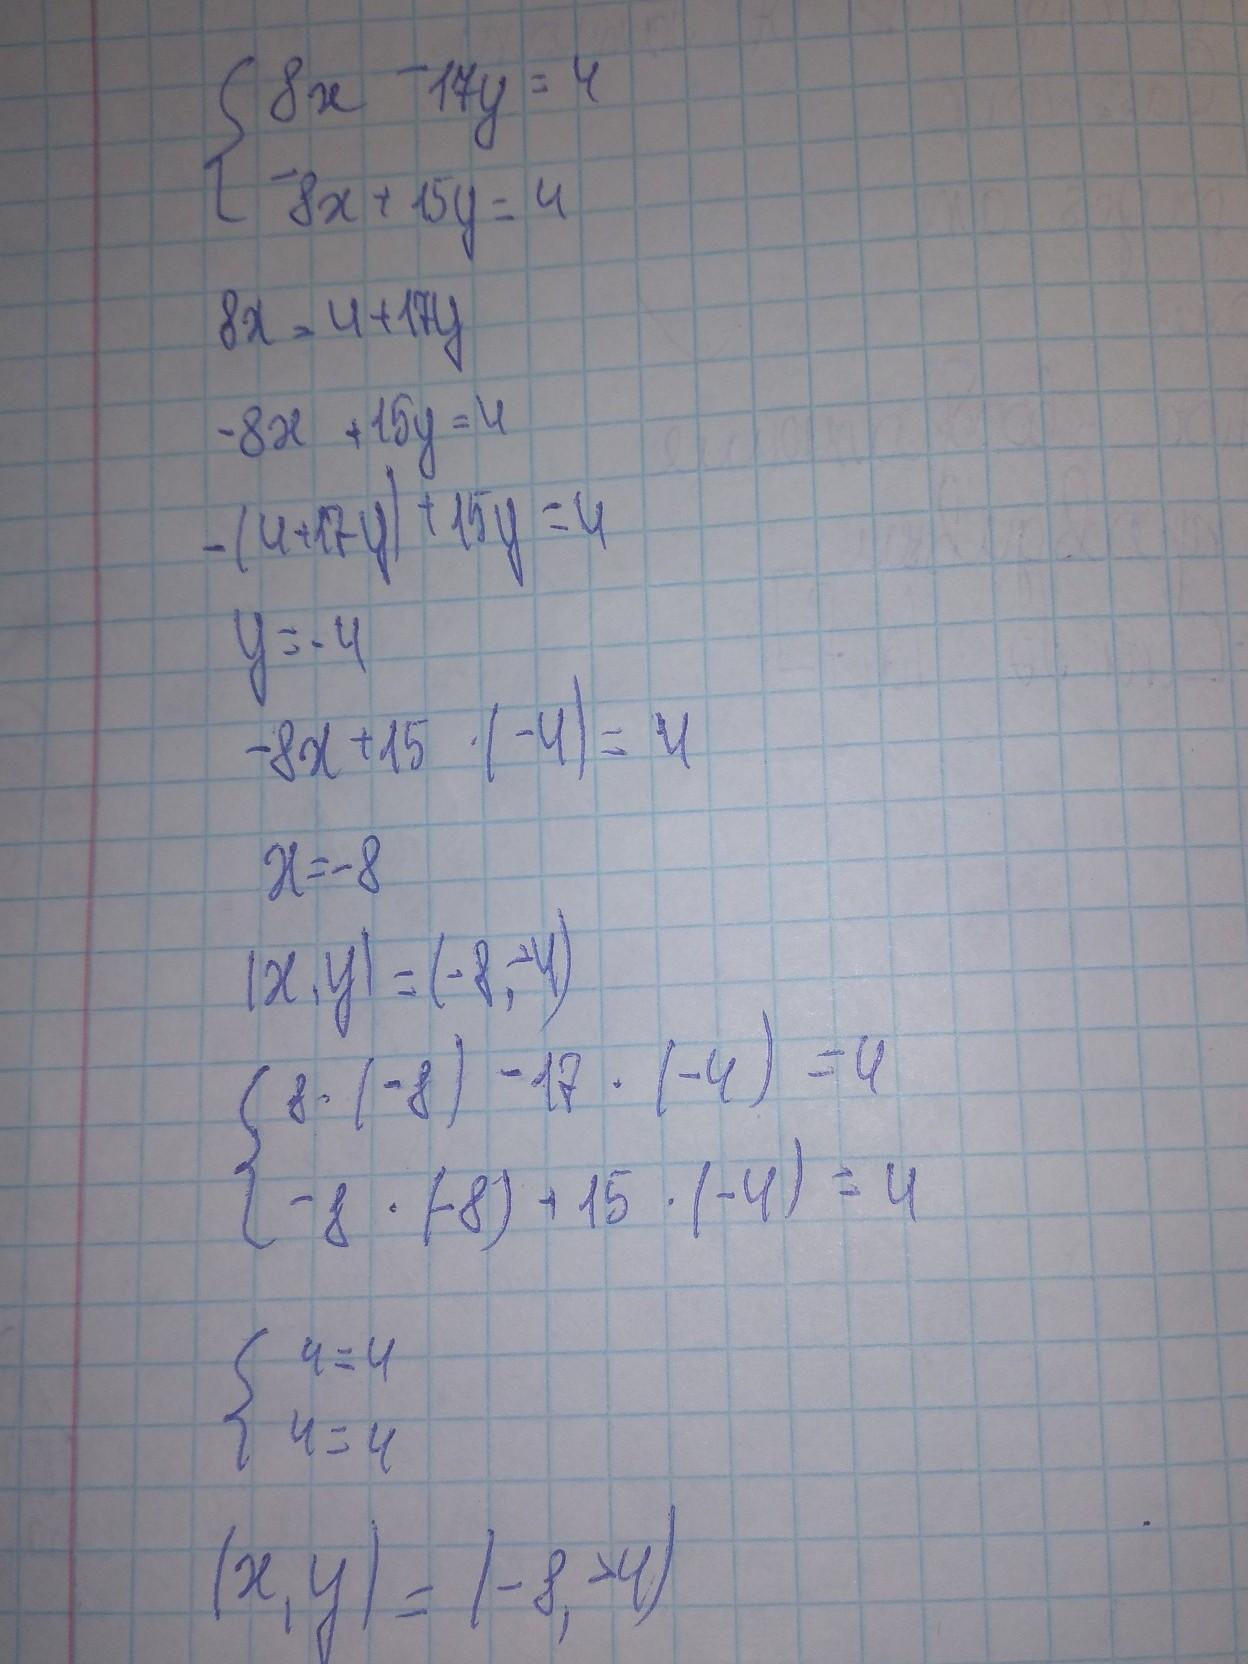 8x -17y = 4
-8x + 15y = 4
8x = 4+17y
-8x +15y = 4
-(4+17y) + 15y = 4
y = -4
-8x + 15 · (-4) = 4
x = -8
(x, y) = (-8, -4)
8 · (-8) - 17 · (-4) = 4
-8 · (-8) + 15 · (-4) = 4
4 = 4
4 = 4
(x, y) = (-8, -4)